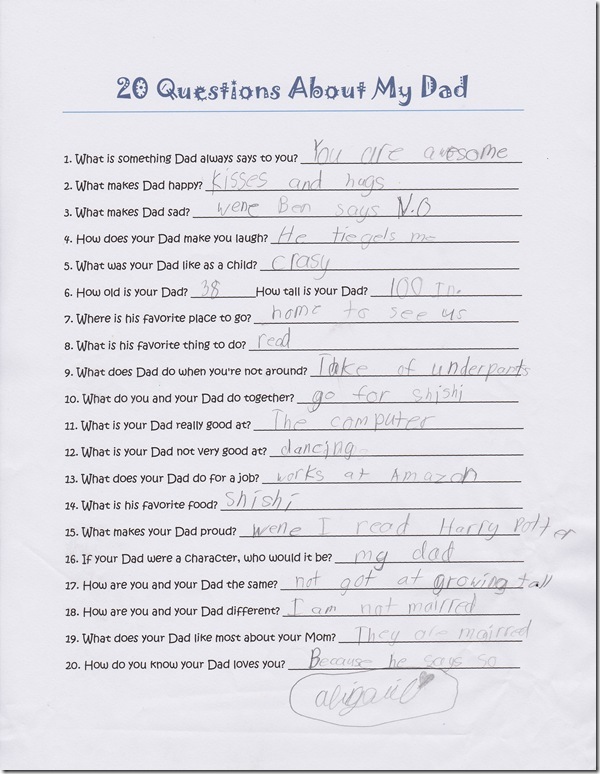 20 Questions About My Dad
1. What is something Dad always says to you? You are awesome
2. What makes Dad happy? kisses and hugs
3. What makes Dad sad? wene Ben says N.O
4. How does your Dad make you laugh? He tiegels me
5. What was your Dad like as a child? crasy
6. How old is your Dad? 38 How tall is your Dad? 100 In.
7. Where is his favorite place to go? home to see us
8. What is his favorite thing to do? read
9. What does Dad do when you're not around? Take of underpants
10. What do you and your Dad do together? go for shishi
11. What is your Dad really good at? The computer
12. What is your Dad not very good at? dancing
13. What does your Dad do for a job? works at Amazon
14. What is his favorite food? shishi
15. What makes your Dad proud? wene I read Harry Potter
16. If your Dad were a character, who would it be? my dad
17. How are you and your Dad the same? not got at growing tall
18. How are you and your Dad different? I am not mairred
19. What does your Dad like most about your Mom? They are mairred
20. How do you know your Dad loves you? Because he says so
abigail